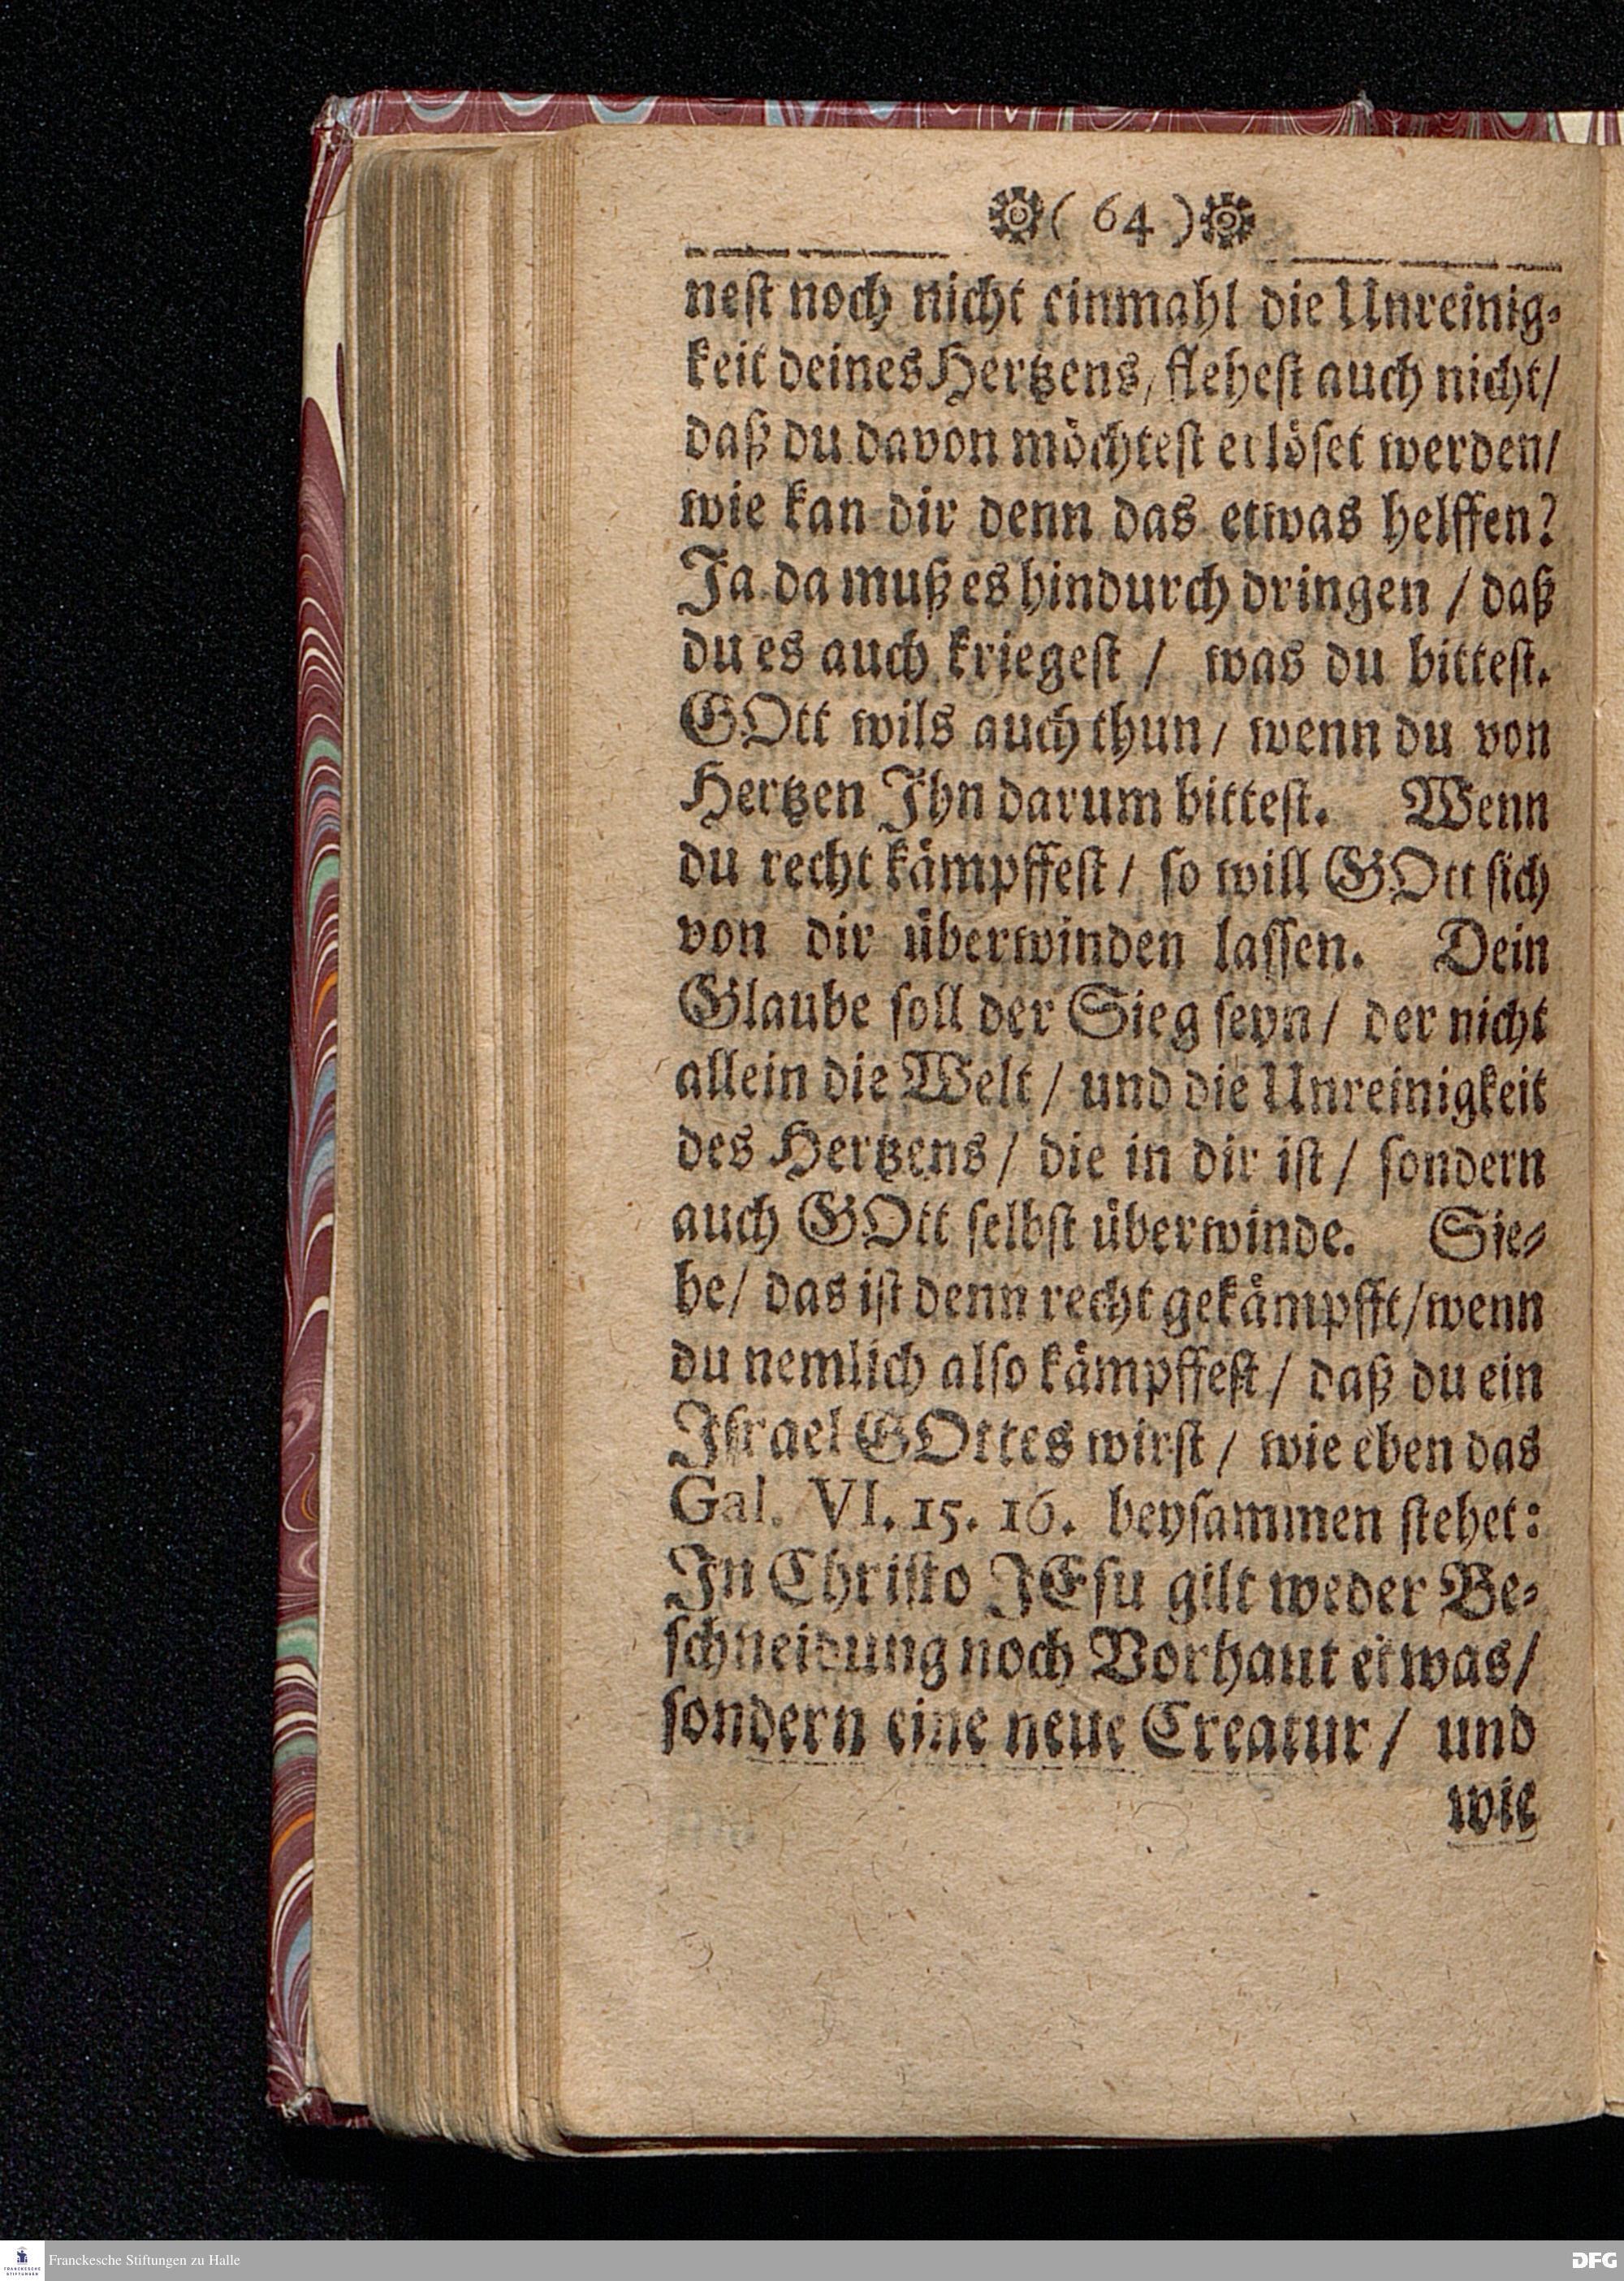 ( 64 )
nest noch nicht einmahl die Unreinig-
keit deines Hertzens, flehest auch nicht/
daß du davon möchtest erlöset werden/
wie kan dir denn das etwas helffen?
Ja da muß es hindurch dringen / daß
du es auch kriegest / was du bittest.
GOtt wils auch thun / wenn du von
Hertzen Ihn darum bittest. Wenn
du recht kämpffest / so will GOtt sich
von dir überwinden lassen. Dein
Glaube soll der Sieg seyn / der nicht
allein die Welt / und die Unreinigkeit
des Hertzens / die in dir ist / sondern
auch GOtt selbst überwinde. Sie-
he / das ist denn recht gekämpfft / wenn
du nemlich also kämpffest / daß du ein
Israel GOttes wirst / wie eben das
Gal. VI. 15. 16. beysammen stehet:
In Christo JEsu gilt weder Be-
schneidung noch Vorhaut etwas /
sondern eine neue Creatur / und
wie
Franckesche Stiftungen zu Halle
DFG